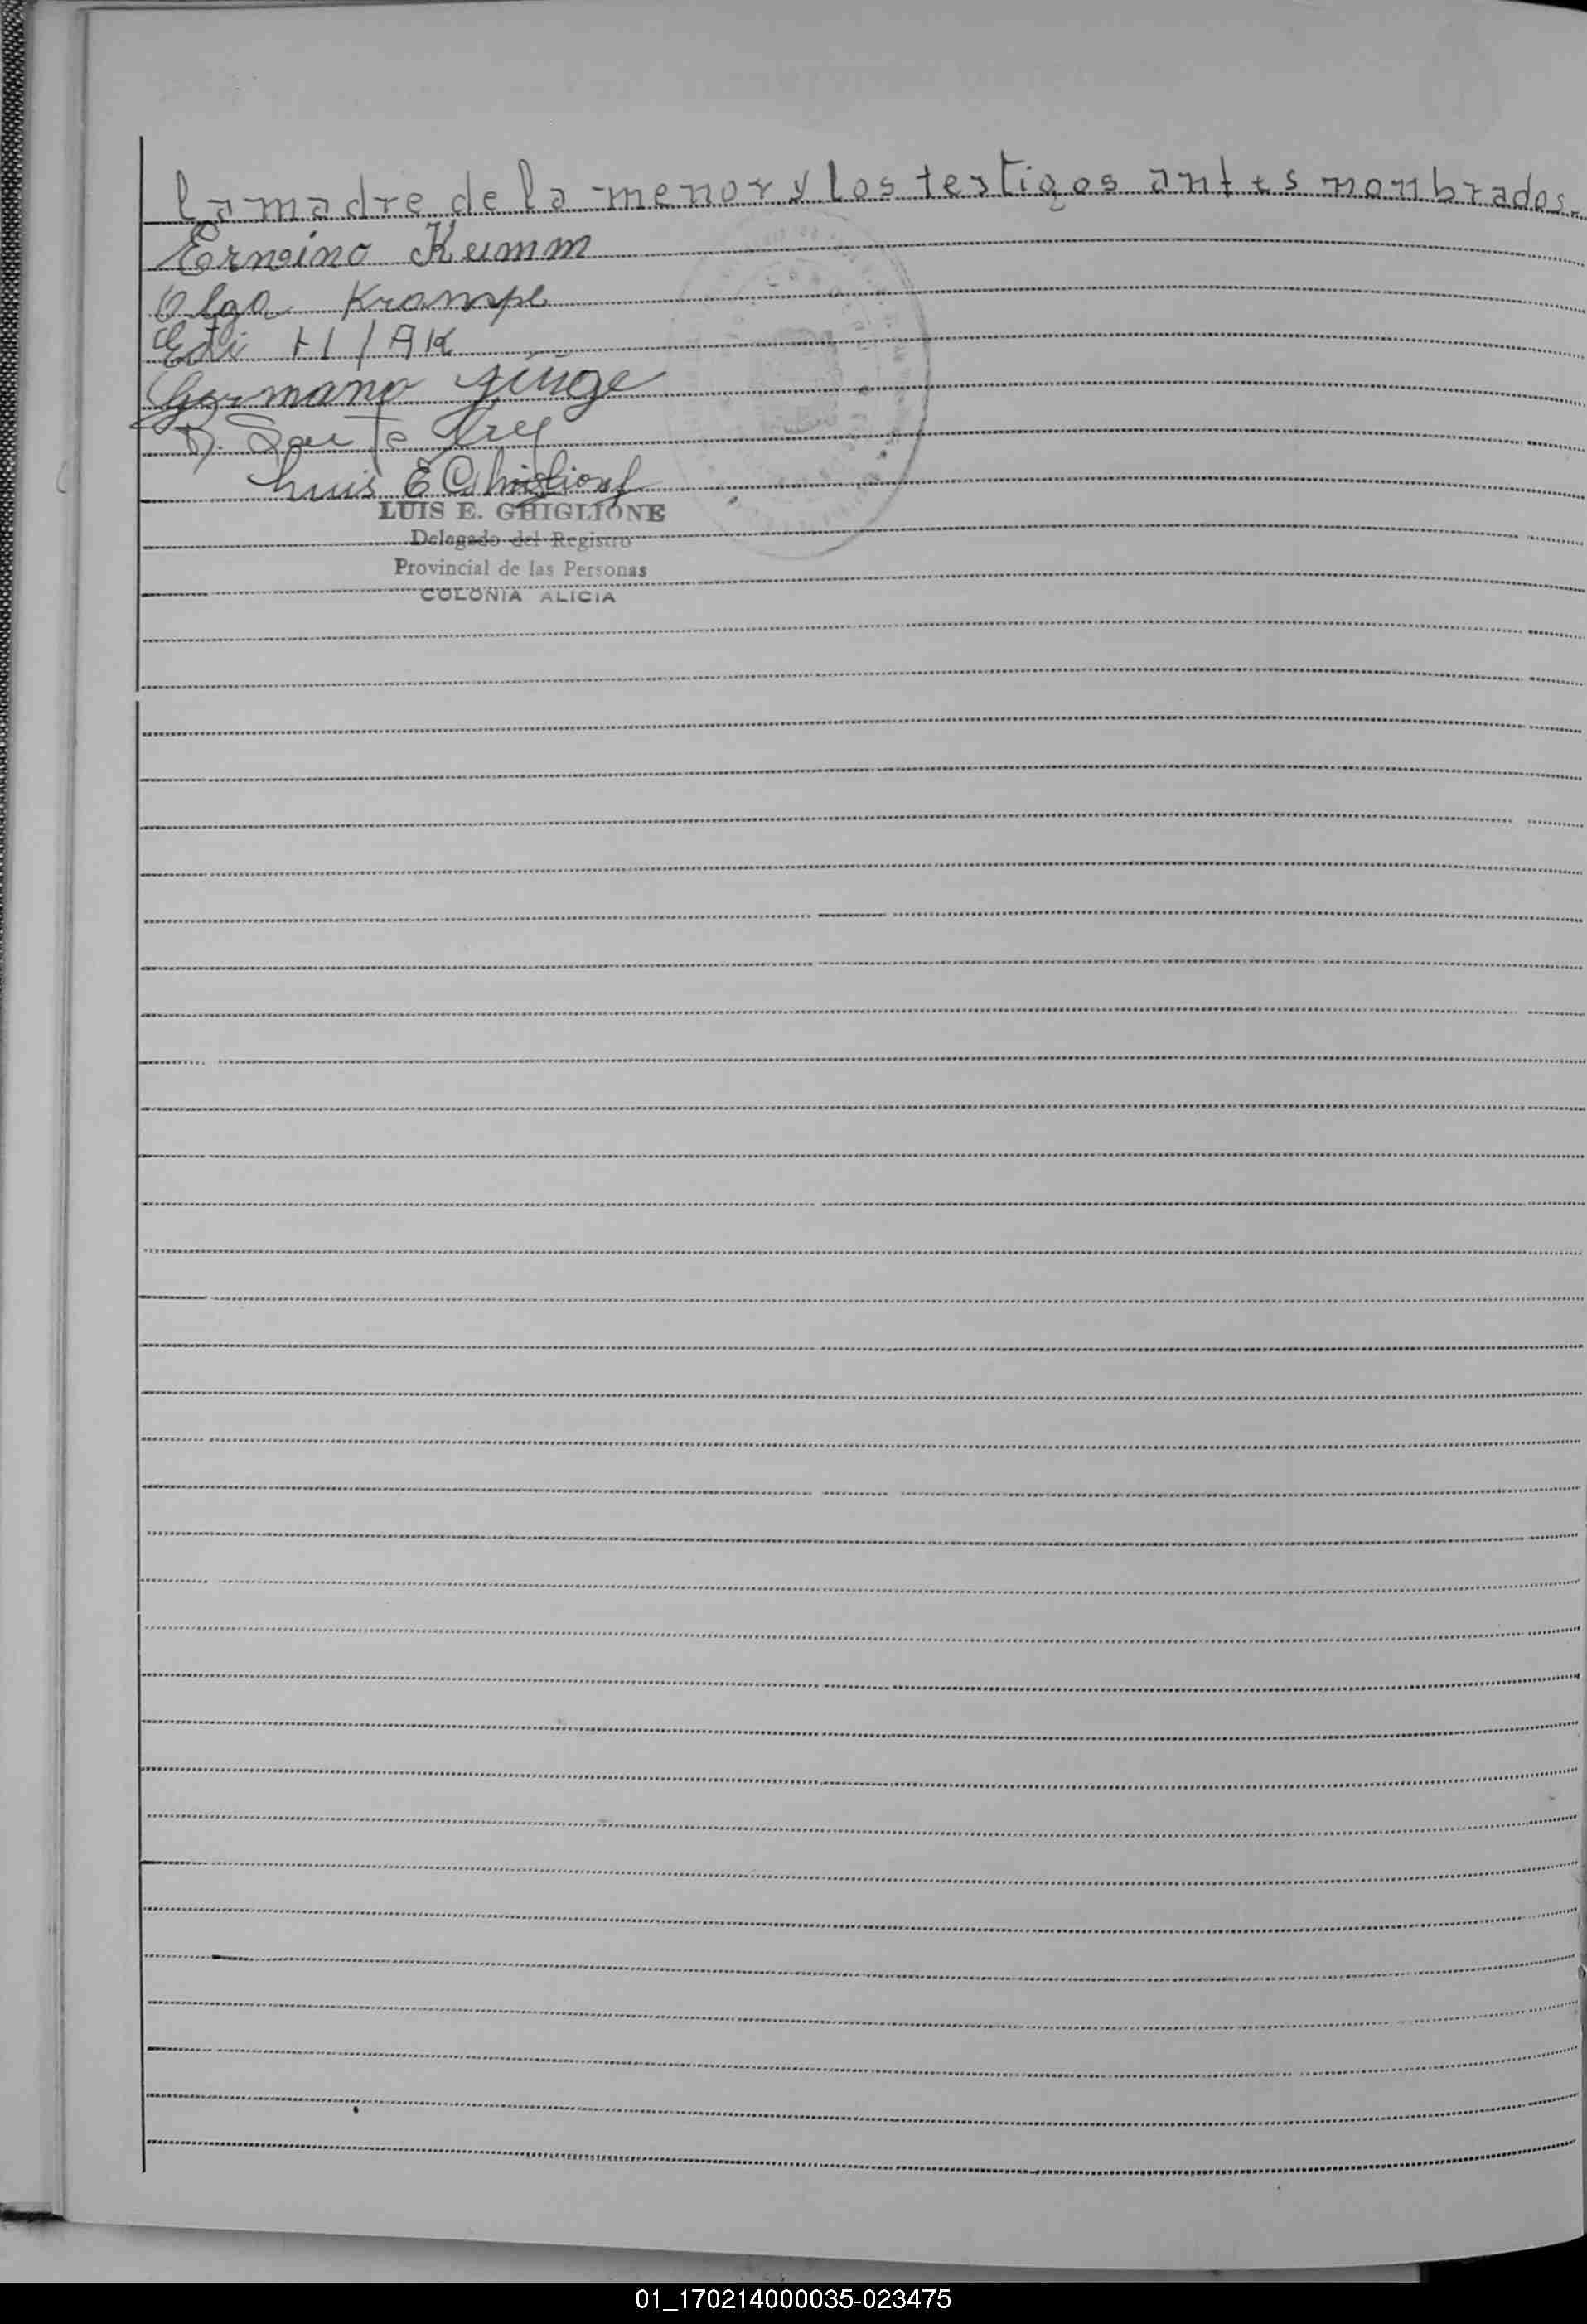 la madre de la menor y los testigos antes nombrados.-
Erneino Kumm
Olga Krampe
Edi
Germano Jünge
Luis E Ghiglione
LUIS E. GHIGLIONE
Delegado del Registro
Provincial de las Personas
COLONIA ALICIA
01_170214000035-023475